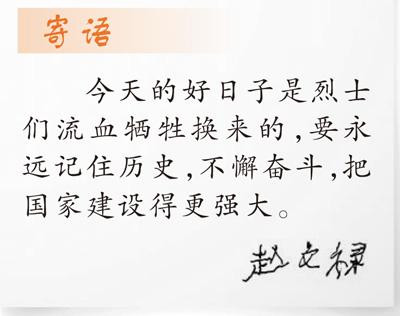 寄语
今天的好日子是烈士
们流血牺牲换来的,要永
远记住历史,不懈奋斗,把
国家建设得更强大。
赵文禄